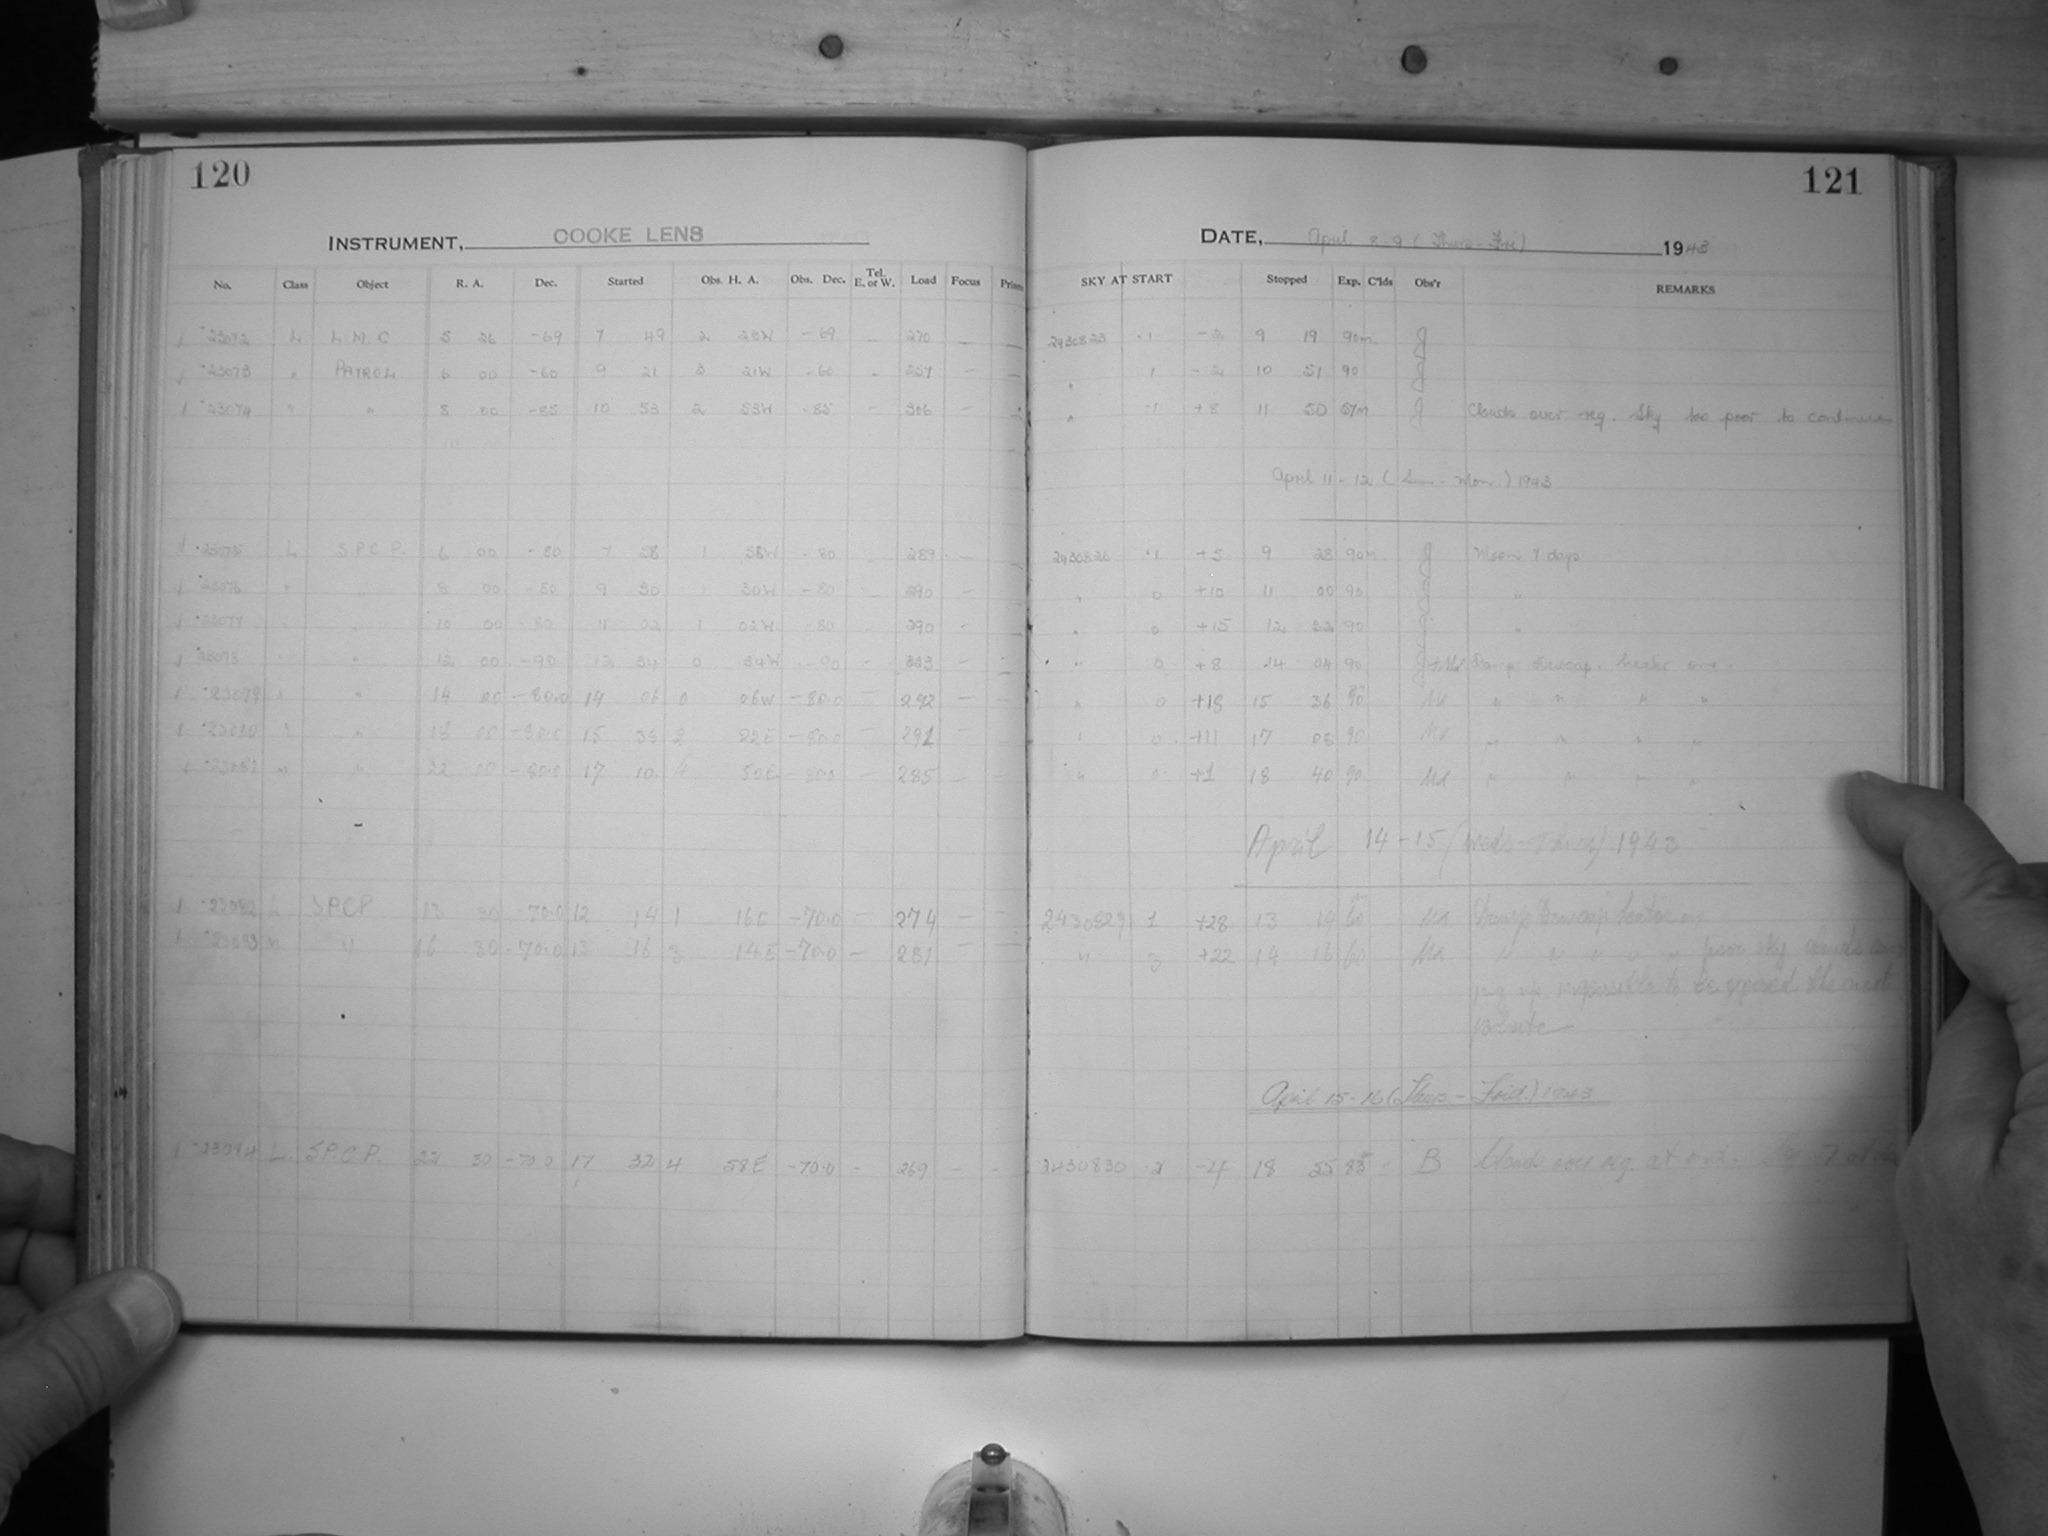 120
121
INSTRUMENT, COOKE LENS
DATE, April 8-9 (Thurs-Fri) 1943
No. Class Object R. A. Dec. Started Obs. H. A. Obs. Dec. Tel. E. or W. Load Focus Prism SKY AT START Stopped Exp. C'lds Obs'r REMARKS
23072 L L M C 5 26 -69 7 49 2 23W -69 - 270 - - 2430823 1 -2 9 19 90m J
23073 " PATROL 6 00 -60 9 21 3 21W -60 - 257 - - " 1 -2 10 51 90 J
23074 " " 8 00 -85 10 53 2 53W -85 - 306 - - " 1 +8 11 50 57m J Clouds over reg. Sky too poor to continue
April 11-12 (Sun-Mon.) 1943
23075 L S P C P. 6 00 -80 7 58 1 58W -80 289 - 2430826 1 +5 9 28 90m J Moon 7 days
23076 " " 8 00 -80 9 30 1 30W -80 - 290 - " 0 +10 11 00 90 J "
23077 " " 10 00 -80 11 02 1 02W -80 - 290 - " 0 +15 12 32 90 J "
23078 " " 12 00 -90 12 34 0 34W -90 - 333 - - " 0 +8 14 04 90 Damp Dewcap. heater on.
23079 " " 14 00 -80.0 14 06 0 06W -80.0 - 292 - - " 0 +18 15 36 90 " " " "
23080 " " 18 00 -80.0 15 38 2 22E -80.0 - 291 - - " 0 +11 17 08 90 " " " "
23081 " " 22 00 -80.0 17 10 4 50E -80.0 - 285 - - " 0 +1 18 40 90 " " " "
April 14-15 (Weds-Thurs) 1943
23082 L SPCP 13 30 -70.0 12 14 1 16E -70.0 - 274 - - 2430829 1 +28 13 14 60 Damp Dewcap heater on
23083 " " 16 30 -70.0 13 16 3 14E -70.0 - 281 - - " 3 +22 14 16 60 " " " " poor sky clouds
up impossible to be exposed the next
plate
April 15-16 (Thurs-Frid.) 1943
23084 L. S.P.C.P. 22 30 -70.0 17 32 4 58E -70.0 - 269 - - 2430830 2 -4 18 55 83 - B Clouds over reg. at